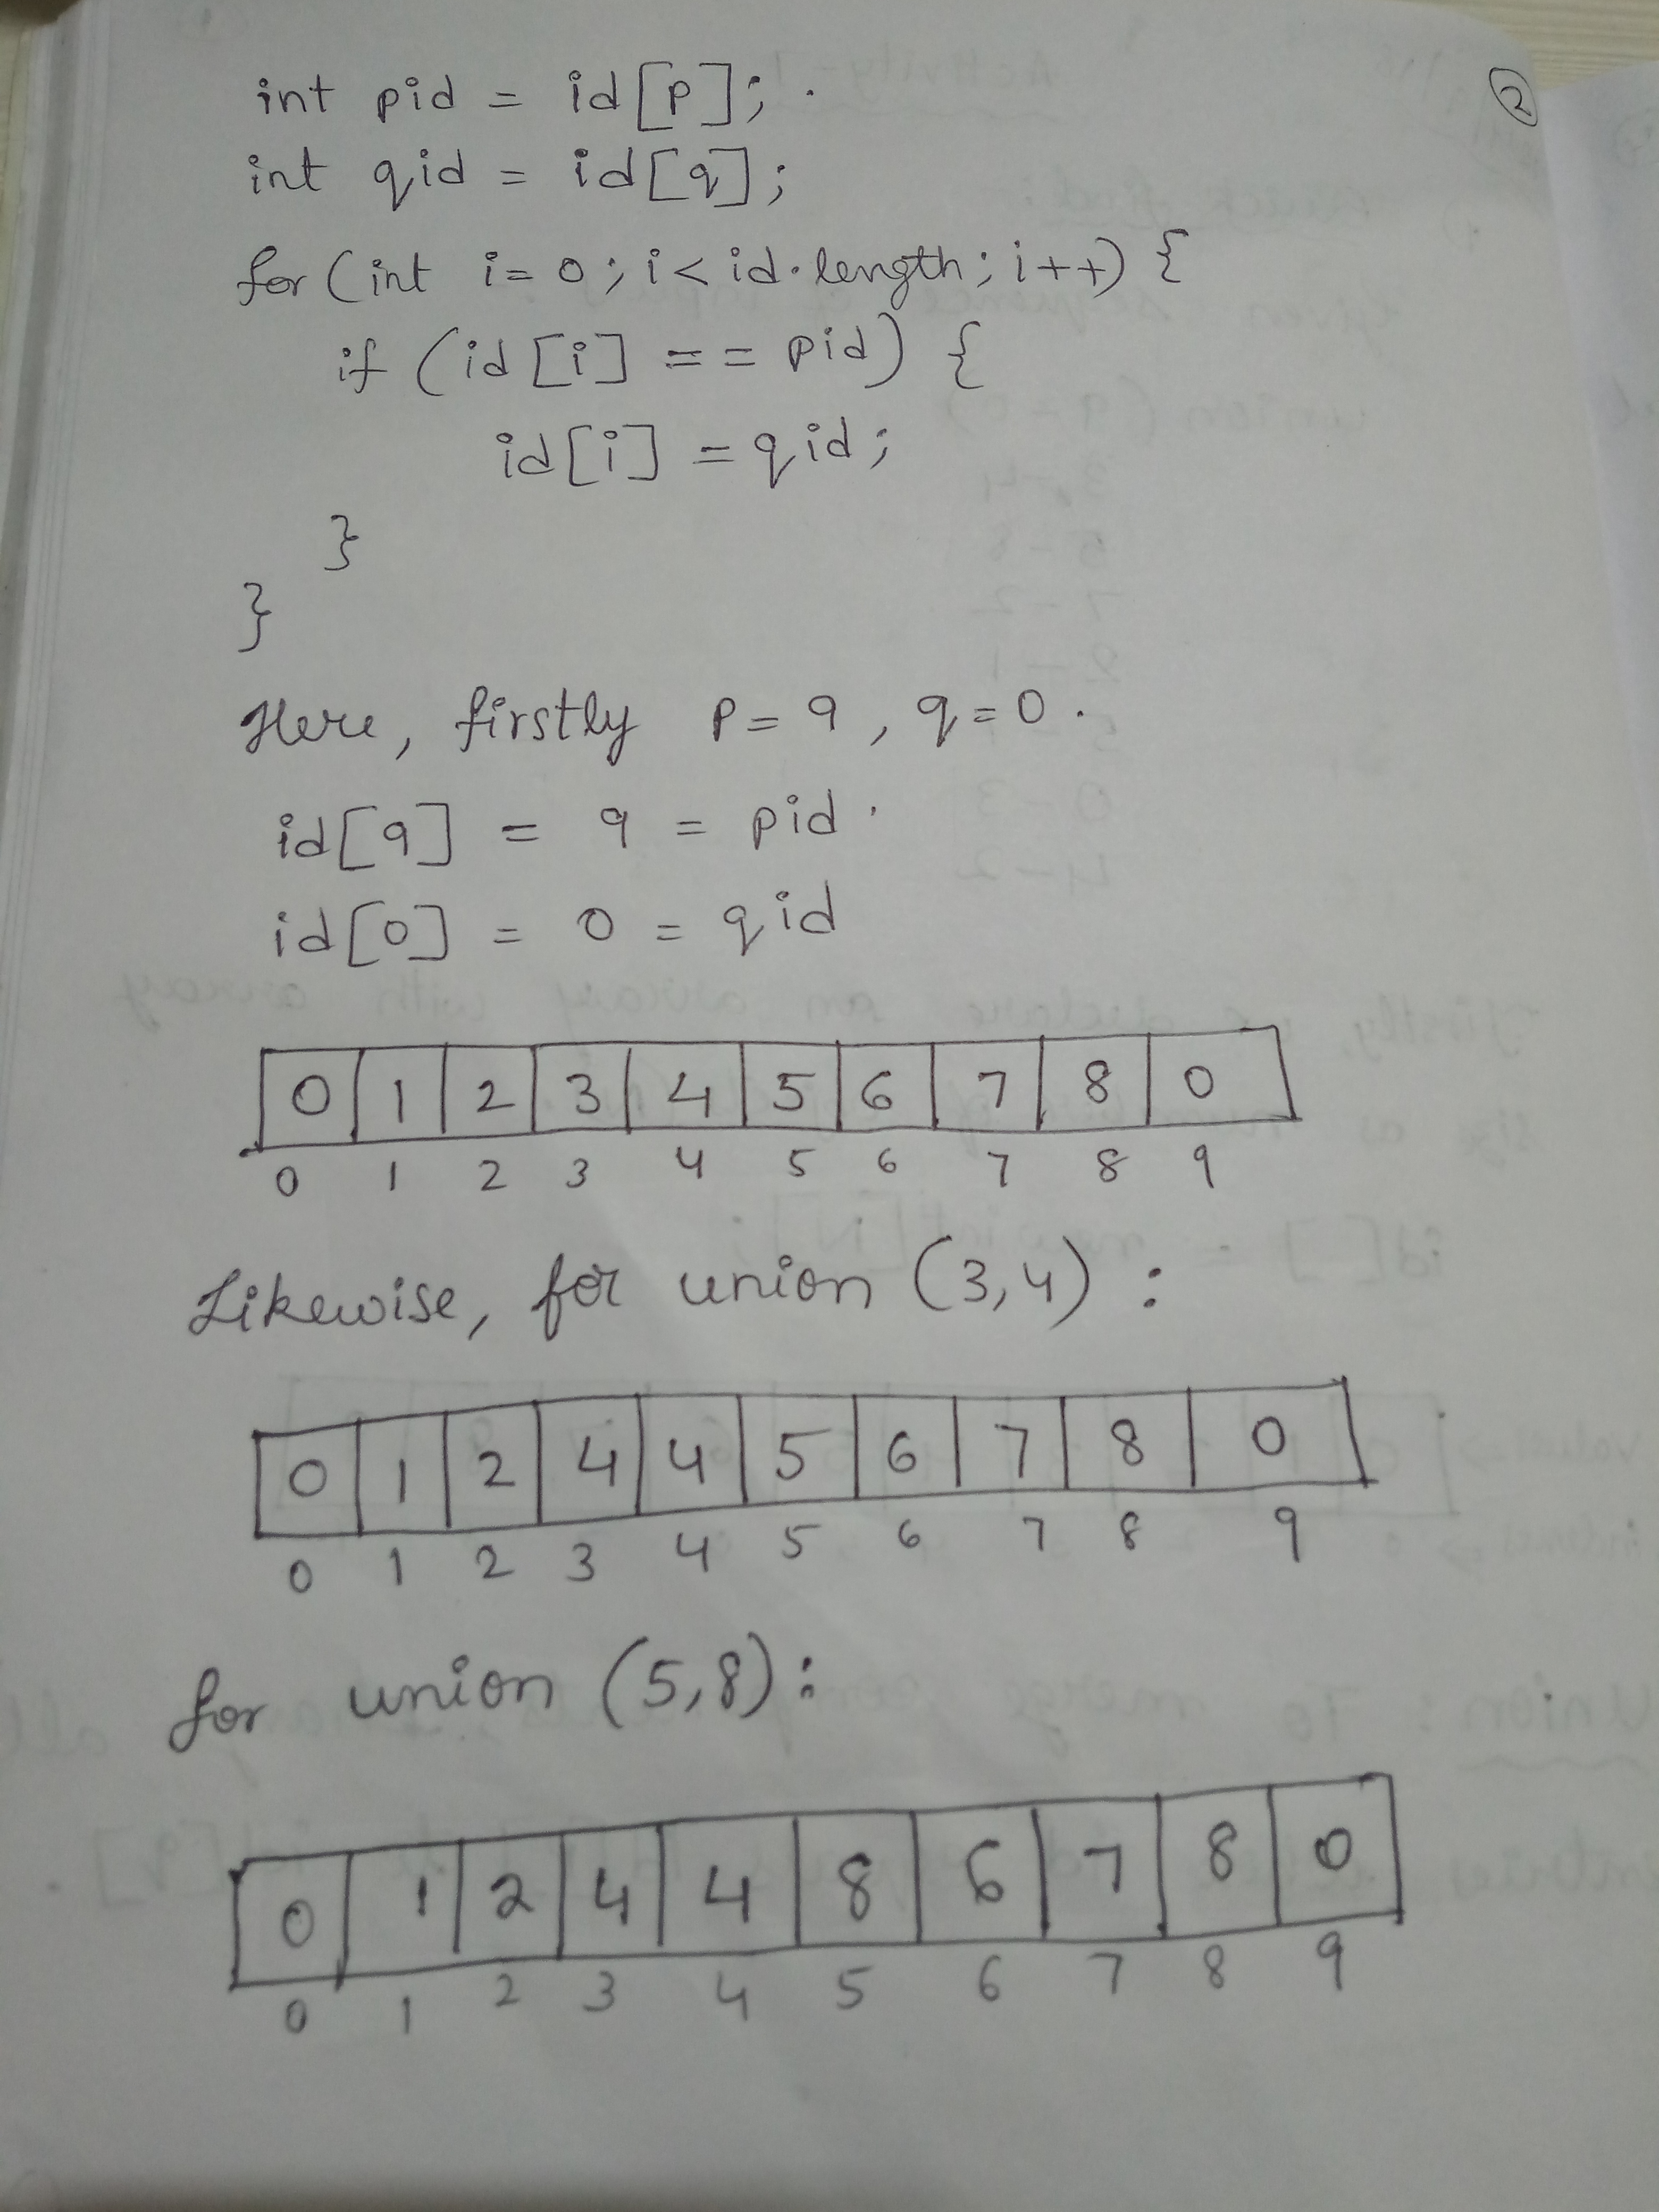 ②
int pid = id[p];
int qid = id[q];
for (int i=0; i< id.length; i++) {
if (id[i] == pid) {
id[i] = qid;
}
}
Here, firstly p=9, q=0.
id[9] = 9 = pid.
id[0] = 0 = qid
0 1 2 3 4 5 6 7 8 0
0 1 2 3 4 5 6 7 8 9
Likewise, for union (3,4) :
0 1 2 4 4 5 6 7 8 0
0 1 2 3 4 5 6 7 8 9
for union (5,8):
0 1 2 4 4 8 6 7 8 0
0 1 2 3 4 5 6 7 8 9